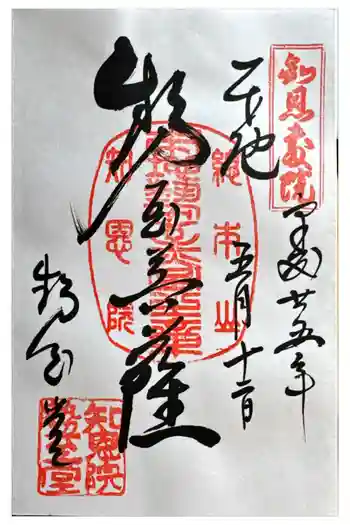 知恩教院
平成廿五年
奉拝
五月十二日
勢至菩薩
総本山
知恩院
勢至堂
知恩院
勢至堂